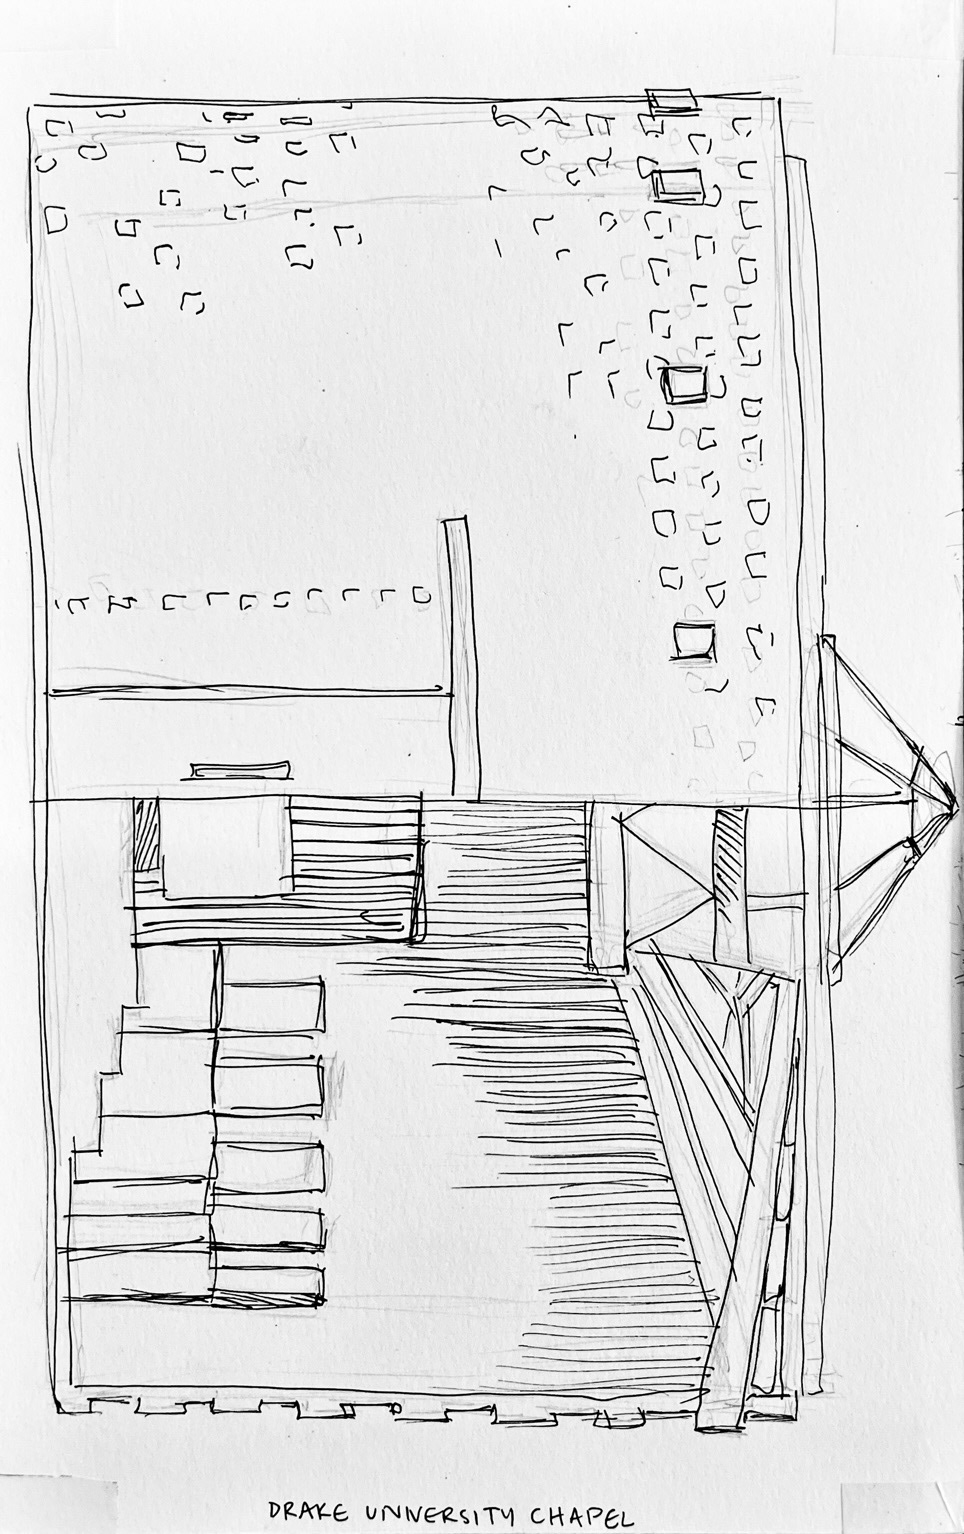 DRAKE UNIVERSITY CHAPEL